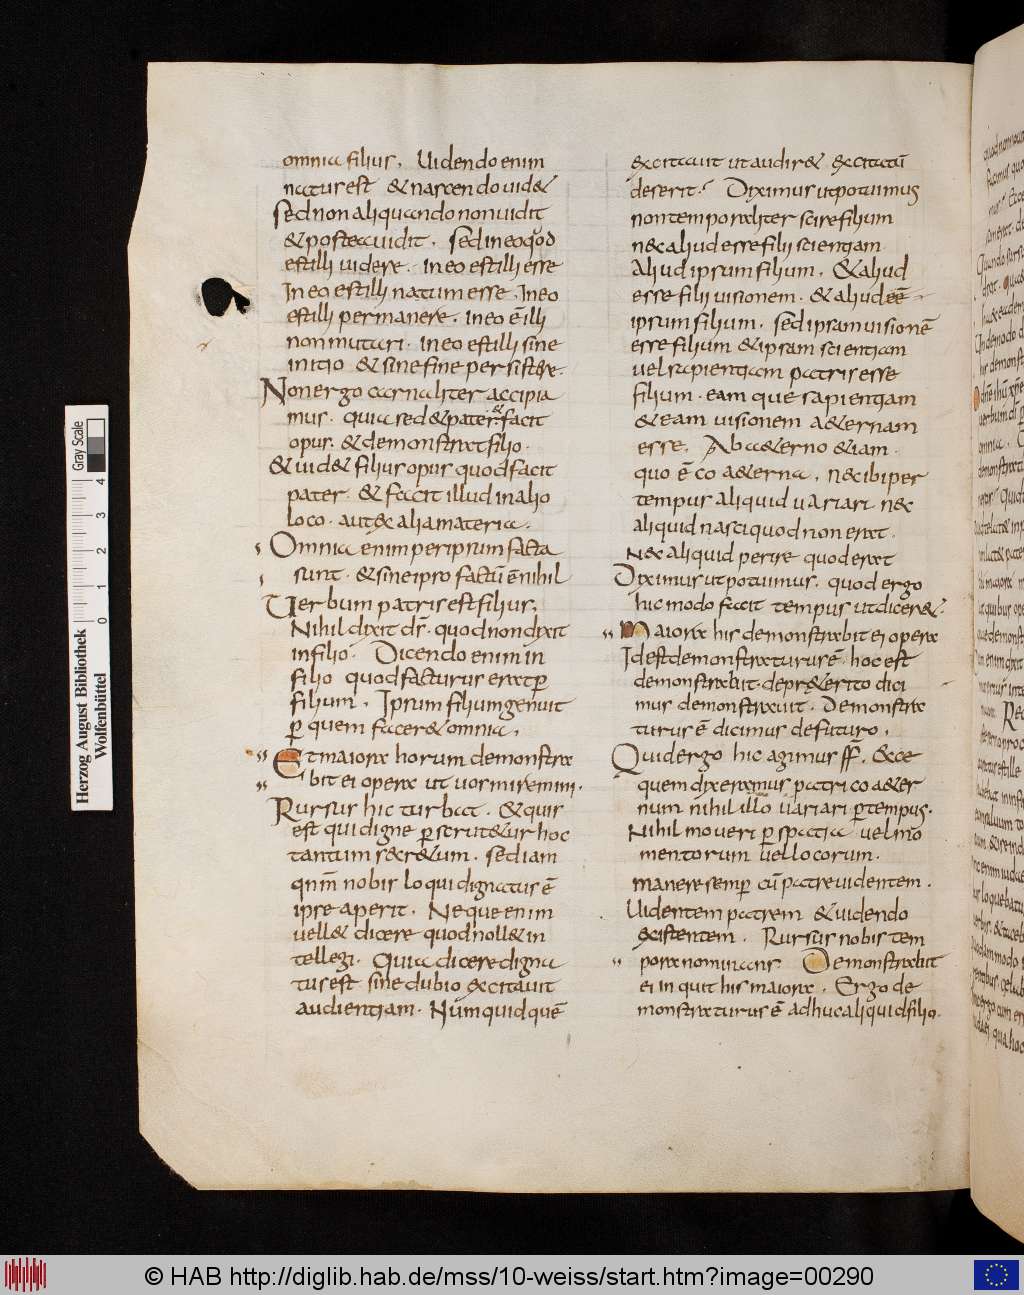 omnia filius. Uidendo enim
natus est & nascendo uid&
sed non aliquando non uidit
& postea uidit. sed in eo quod
est illi uidere. in eo est illi esse
In eo est illi natum esse. In eo
est illi permanere. in eo ē illi
non mutari. in eo est illi sine
initio & sine fine persistere.
Non ergo carnaliter accipia
mus. quia sed& pater & facit
opus. & demonstrat filio.
& uid& filius opus quod facit
pater. & facit illud in alio
loco. aut &c alia materia.
Omnia enim per ipsum facta
sunt. & sine ipso factū ē nihil
Uerbum patris est filius,
Nihil dixit ds̄. quod non dixit
in filio. Dicendo enim in
filio quod facturus erat ꝑ
filium. Ipsum filium genuit
ꝑ quem facer& omnia,
Et maiora horum demonstra
bit ei opera ut uos miremini.
Rursus hic turbat. & quis
est qui digne ꝑscrut&ur hoc
tantum secr&um. sed iam
qnm̄ nobis loqui dignatus ē
ipse aperit. Neque enim
uell& dicere quod noll& in
tellegi. Quia dicere digna
tus est sine dubio excitauit
audientiam. Numquid quē
excitauit ut audir& excitatū
deserit? Diximus ut potuimus
non temporaliter scire filium
nec aliud esse filii scientiam
Aliud ipsum filium. & aliud
esse filii uisionem. & aliud eē
ipsum filium. sed ipsam uisionē
esse filium & ipsam scientiam
uel sapientiam patris esse
filium. eam que sapientiam
& eam uisionem a&ernam
esse. Ab a&erno & iam.
quo ē co a&erna. nec ibi per
tempus aliquid uariari nec
aliquid nasci quod non erat.
Nec aliquid perire quod erat
Diximus ut potuimus. quod ergo
hic modo facit tempus ut dicer&.
Maiora his demonstrabit ei opera
Id est demonstraturus ē. hoc est
demonstrabit. de pr&erito dici
mus demonstrauit. Demonstra
turus ē dicimus de futuro.
Quid ergo hic agimus ff̄. ecce
quem dixeramus patri coa&er
num nihil illo uariari ꝑ tempus.
Nihil moueri ꝑ spatia uel mo
mentorum uel locorum.
manere semꝑ cū patre uidentem.
Uidentem patrem & uidendo
existentem. Rursus nobis tem
pora nominans. Demonstrabit
ei inquit his maiora. Ergo de
monstraturus ē adhuc aliquid filio.
Herzog August Bibliothek
Wolfenbüttel
Gray Scale
0 1 2 3 4
© HAB http://diglib.hab.de/mss/10-weiss/start.htm?image=00290